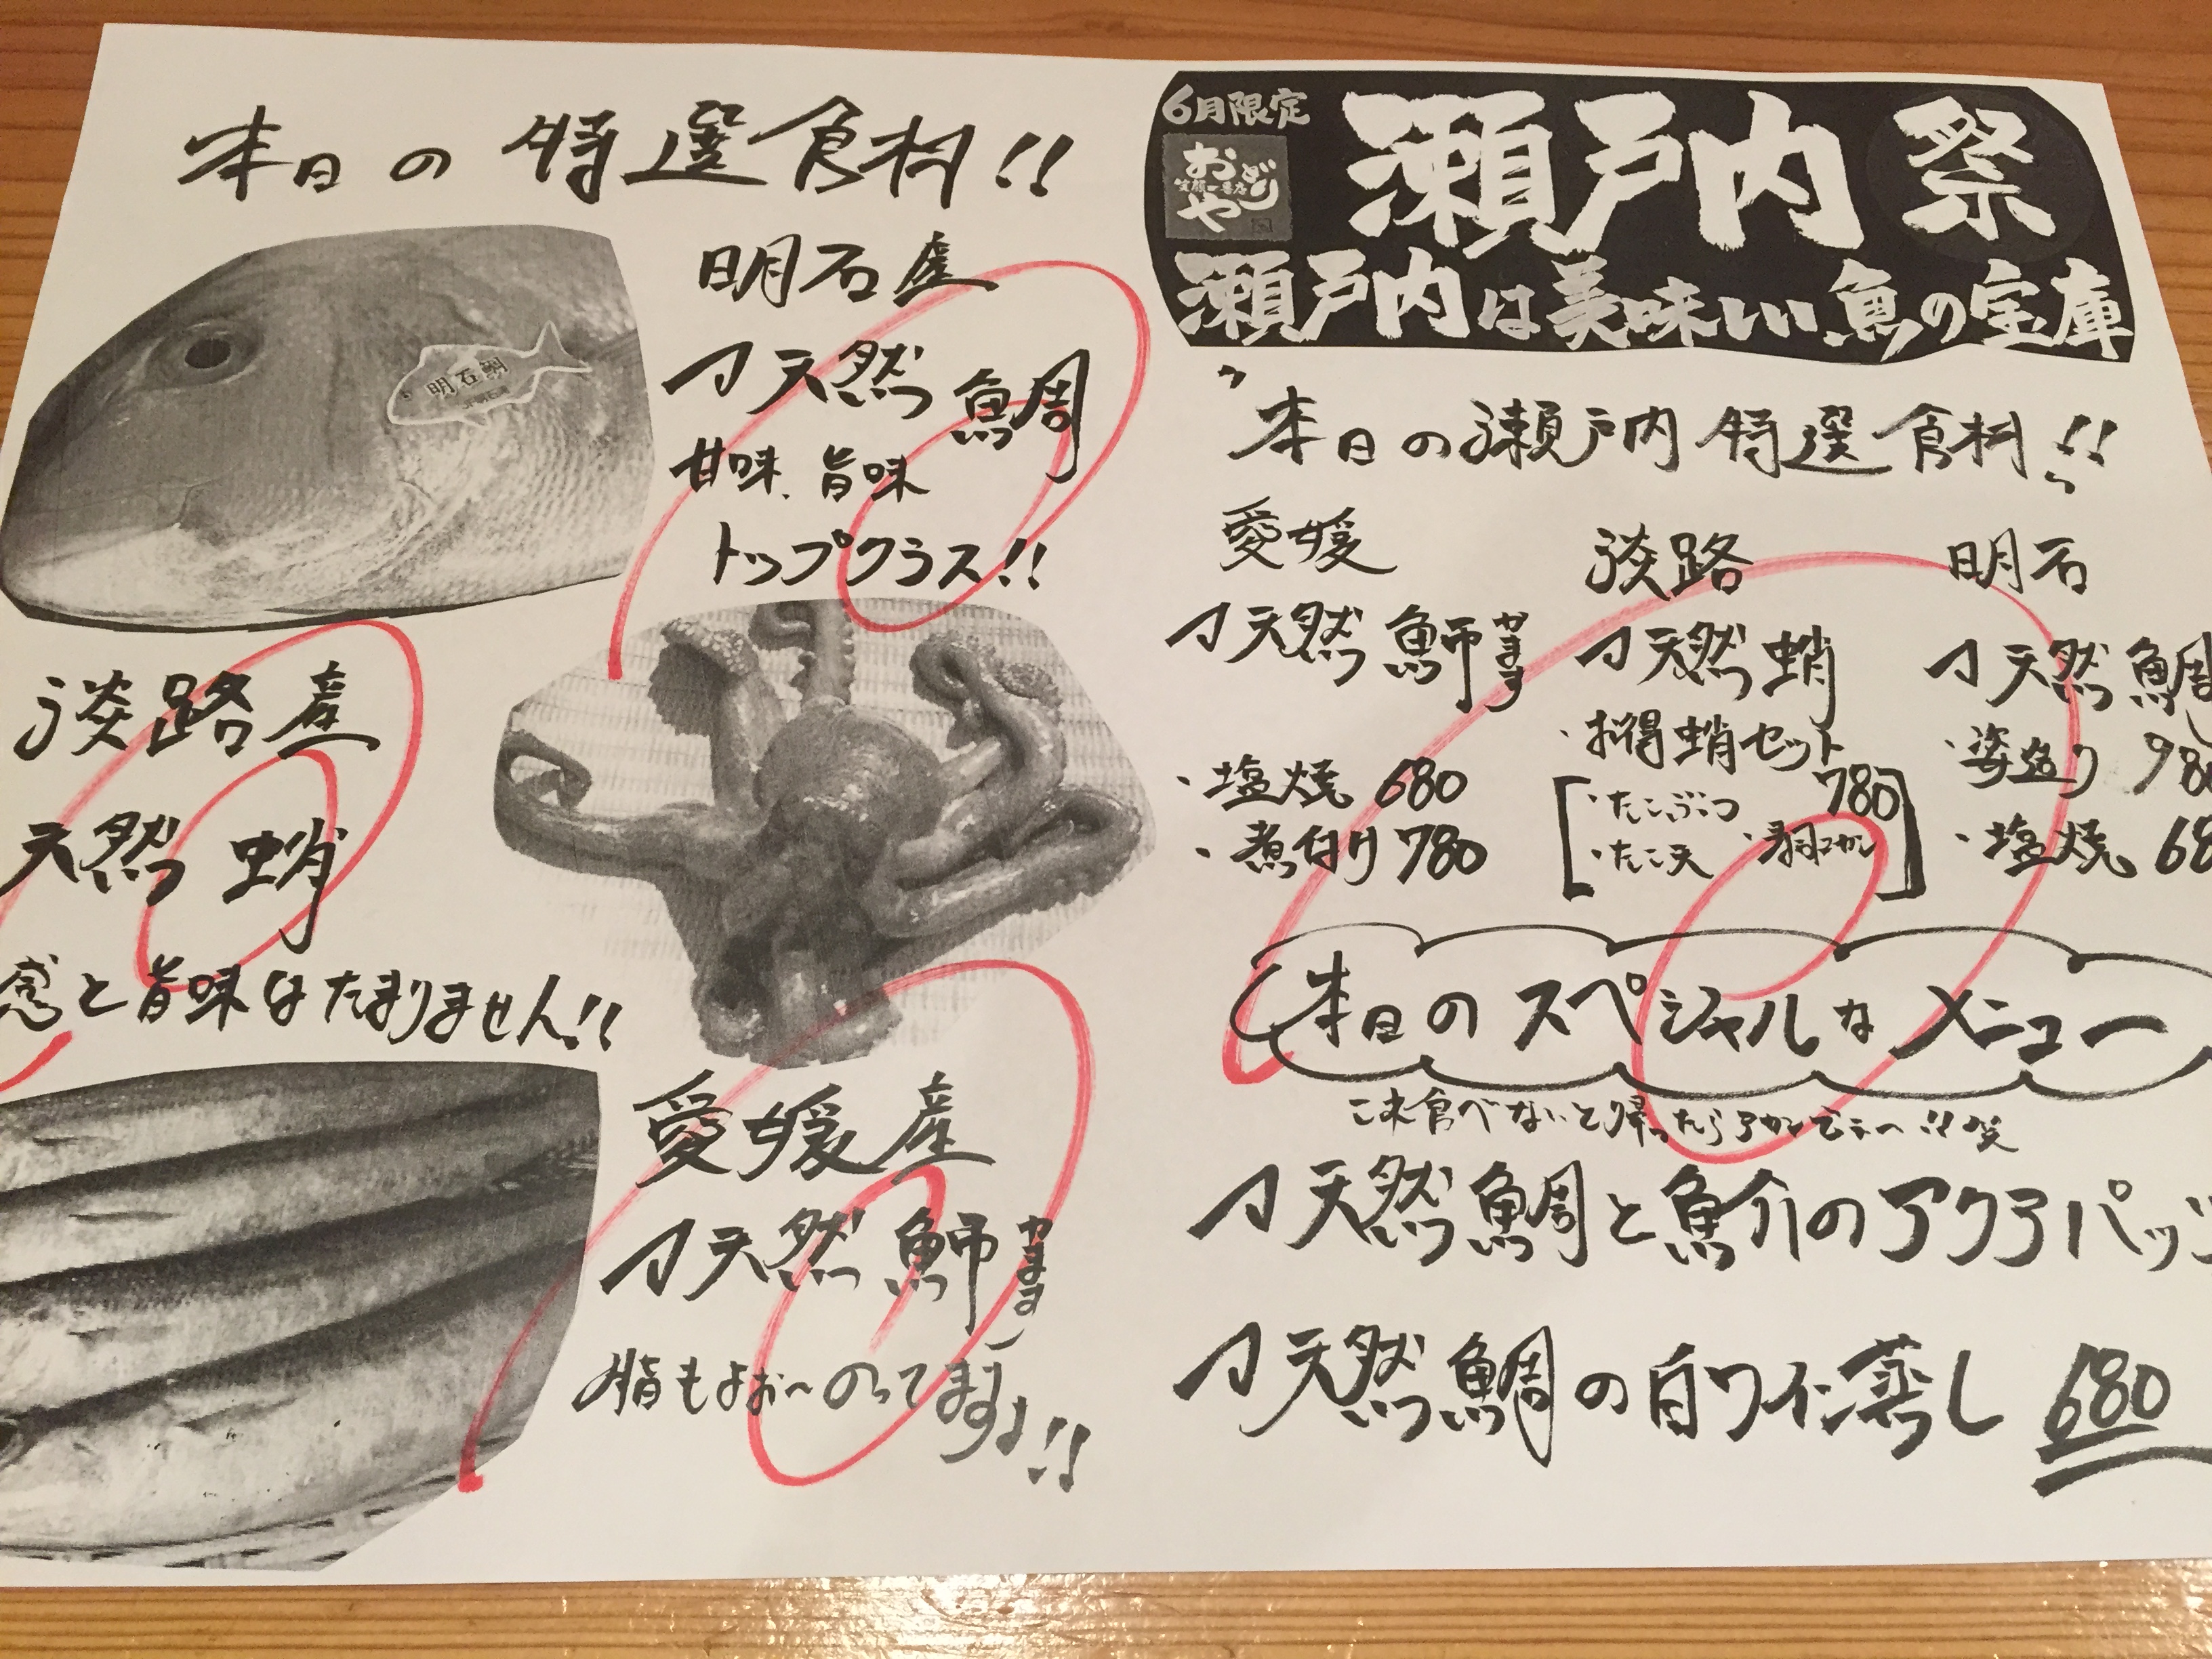 本日の特選食材!!
明石産
天然鯛
甘味、旨味
トップクラス!!
明石鯛
淡路産
天然蛸
感と旨味はたまりません!!
愛媛産
天然魳
かます
脂もよお〜のってますよ!!
6月限定
おどりや
瀬戸内祭
瀬戸内は美味しい魚の宝庫
"本日の瀬戸内特選食材!!"
愛媛
天然魳
かます
・塩焼 680
・煮付け 780
淡路
天然蛸
・お得蛸セット
780
・たこぶつ
・たこ天
明石
天然鯛
・姿造り 98
・塩焼 68
本日のスペシャルなメニュー
これ食べないと帰ったらアカンでぇ〜!!笑
天然鯛と魚介のアクアパッツ
天然鯛の白ワイン蒸し 680